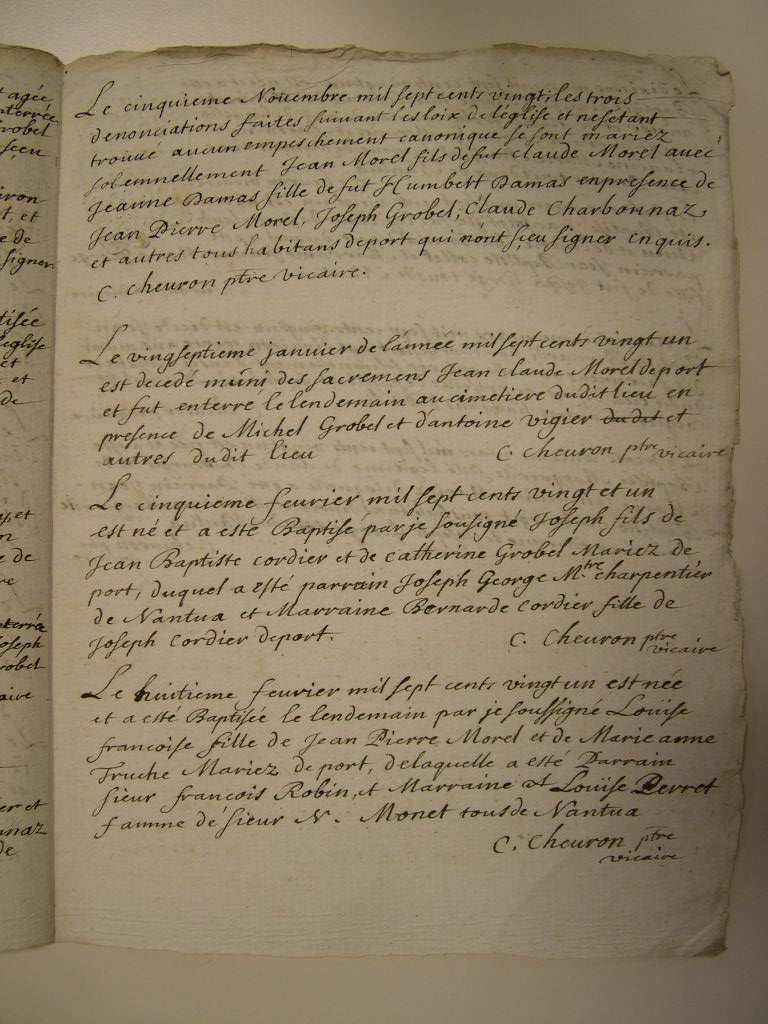 t agée
nterrée
robel
sçeu
iron
t, et
e de
signer
tisée
eglise
et
et
de
et
n
e de
re
nterré
Joseph
robel
aire
er et
nnaz
de
Le cinquieme Nouembre mil sept cents vingt, les trois
denonciations faites suivant les loix de léglise et nesétant
trouué aucun empeschement canonique se sont mariez
solemnellement Jean Morel fils defut claude Morel auec
Jeanne Damas fille defut Humbert Damas enpresence de
Jean Pierre Morel, Joseph Grobel, Claude Charbonnaz,
et autres tous habitans deport qui nónt sçeu signer enquis.
C. cheuron ptre vicaire.
Le vingseptieme janvier de lánneé mil sept cents vingt un
est decedé muni des sacremens Jean claude Morel deport
et fut enterré le lendemain aucimetiere dudit lieu en
presence de Michel Grobel et d'antoine vigier dudit et
autres dudit lieu C. cheuron ptre vicaire
Le cinquieme feurier mil sept cents vingt et un
est né et a esté Baptisé par je sousigné Joseph fils de
Jean Baptiste cordier et de catherine Grobel Mariez de
port, duquel a esté parrain Joseph George Mtre charpentier
de Nantua et Marraine Bernarde cordier fille de
Joseph cordier deport. C. Cheuron ptre
vicaire
Le huitieme feurier mil sept cents vingt un est née
et a esté Baptisée le lendemain par je soussigné Loüise
francoise fille de Jean Pierre Morel et de Marie anne
Truche Mariez de port, delaquelle a esté Parrain
sieur francois Robin, et Marraine Loüise Perret
famme de sieur N. Monet tous de Nantua
C. Cheuron ptre
vicaire